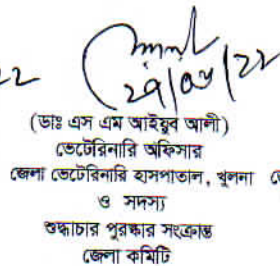 ২২
২৭/০৬/২২
(ডাঃ এস এম আইয়ুব আলী)
ভেটেরিনারি অফিসার
জেলা ভেটেরিনারি হাসপাতাল, খুলনা
ও সদস্য
শুদ্ধাচার পুরস্কার সংক্রান্ত
জেলা কমিটি